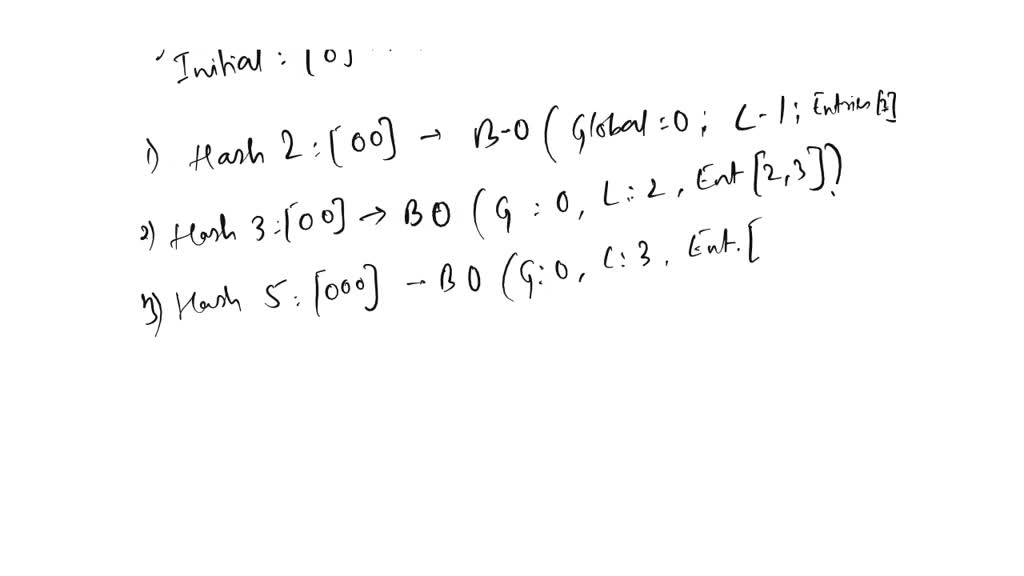 Initial : [0]
1) Hash 2 : [00] → B-0 ( Global = 0 ; L - 1 ; Entries [2]
2) Hash 3 : [00] → B0 ( G : 0 , L : 2 , Ent [2,3] )
3) Hash 5 : [000] → B0 ( G : 0 , L : 3 , Ent. [